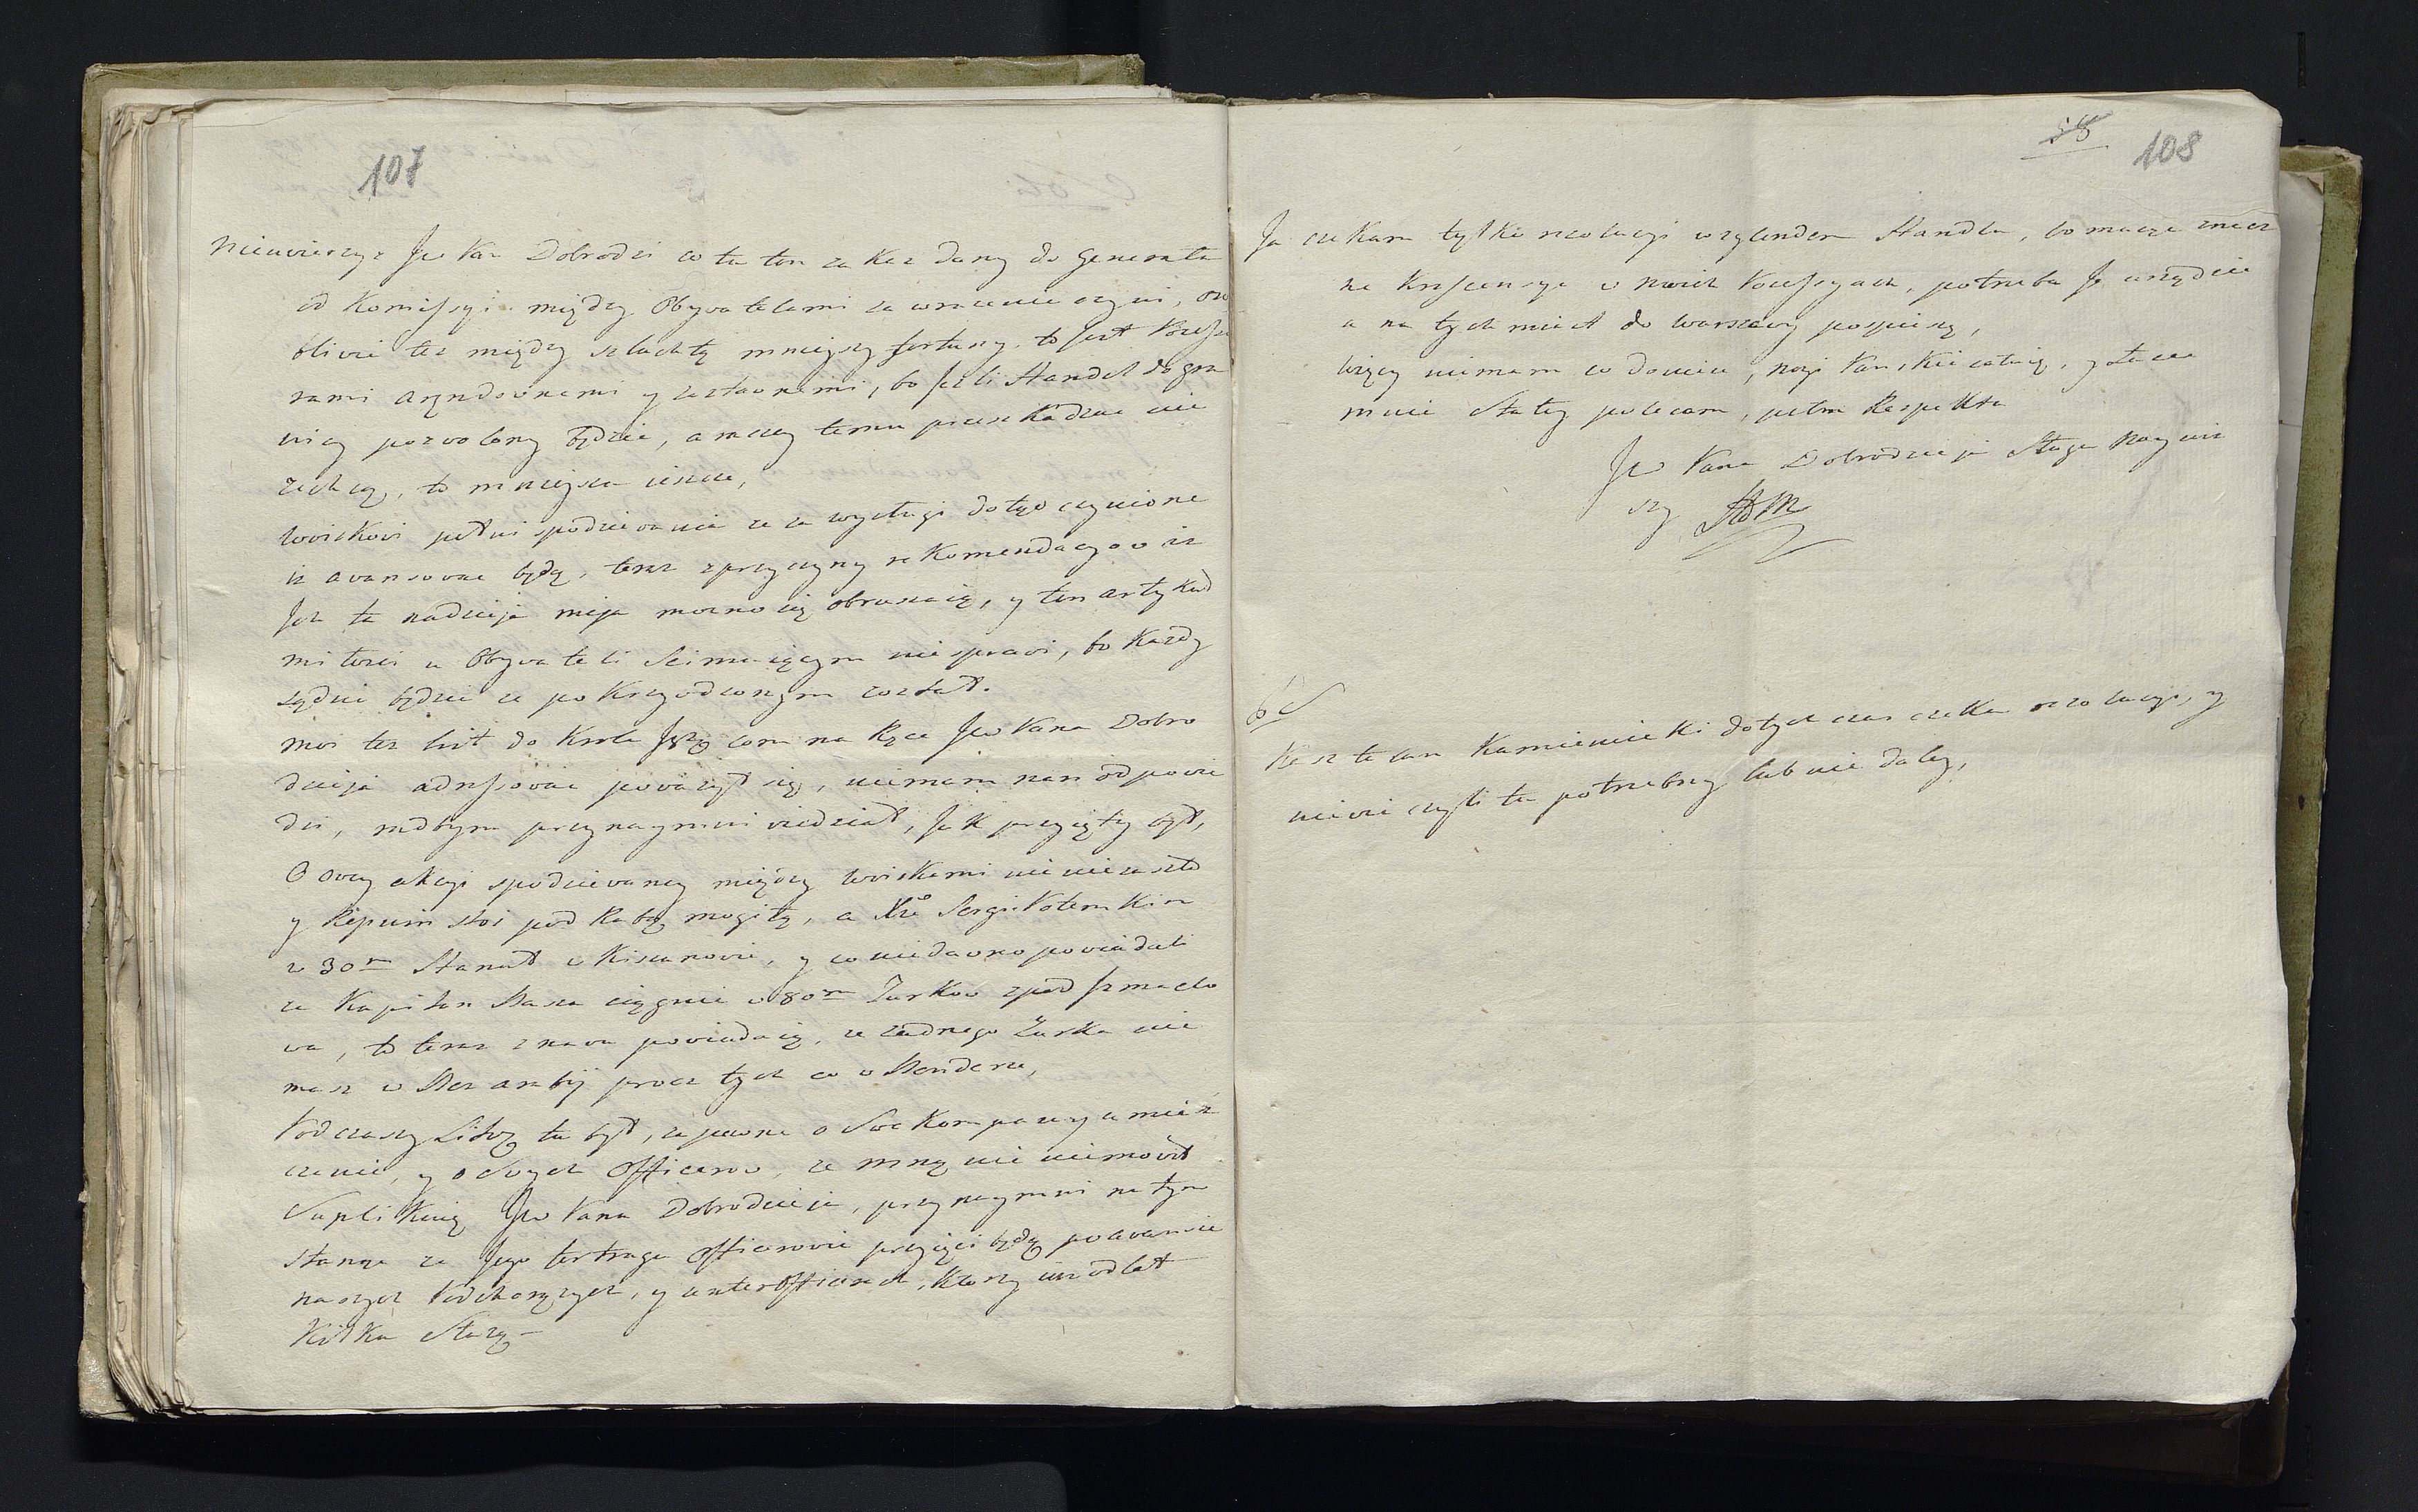 107
Niewierzyż Jw Pan Dobrodzi co tu ten zakaz dany do Generała
od Komissyi między Obywatelami za wrażenie czyni, oso
bliwie też między szlachtą mnieyszy fortuny to jest Possesso
rami arędownemi y zastawnemi, bo jeżli Handel do gra
nicy pozwolony będzie, a inszy temu przeszkadzać nie
zechcą, to mnieysza ieszcze,
Woiskowi pełni spodziewania że za wysługi dotąd czynione
iż avansować będą, teraz z przyczyny rekomendacyow iż
Jch ta nadzieja mija mocno się obruszaią, y ten artykuł
miłości u Obywateli Seimuiącym nie sprawi, bo każdy
sądzić będzie że pokrzywdzonym został.
moi też list do Krola Jmci com na Ręce Jw Pana Dobro
dzieja adressować poważył się, nimam nań odpowie
dzi, radbym przynaymni wiedział, jak przyięty był,
O owey akcyi spodziewaney między Woiskami nic nie zaszło
y Repnin stoi pod Rabą mogiłą, a Xże Sergi Potemkin
z 30m Stanął w Kiszanowie, y co niedawno powiadali
że Kapitan Basza ciągnie w 80m Turkow z pod Jzmaelo
wa, to teraz znowu powiadaią, że żadnego Turka nie
masz w Bezarabij procz tych co w Benderze,
Podczaszy Litt tu był, zapewne o Swe Kompanzy umiesz
czenie, y o Swych Officerow, ze mną nic niemowił
Suplikuię Jw Pana Dobrodzieja, przynaymni na tym
stanąć że Jego Officerowie przyięci będą po avansie
naszych Podchorążych, y unterofficerach, ktorzy iuż od lat
kilka Służą –
108
Ja czekam tylko rezolucyi względem Handlu, bo maiąc znacz
ne Krescensye w swoich Possessyach, potrzeba Je urządzić
a natychmiast do Warszawy pospieszę,
więcy nimam co donieść, nogi Pańskie całuię, y Łasce
mnie Stałey polecam, pełen Respektu
Jw Pana Dobrodzieja Sługa nayniż
szy
PS
Kasztelan Kamieniecki dotychczas czeka rezolucyi, y
niewie czyli tu potrzebny lub nie daley,